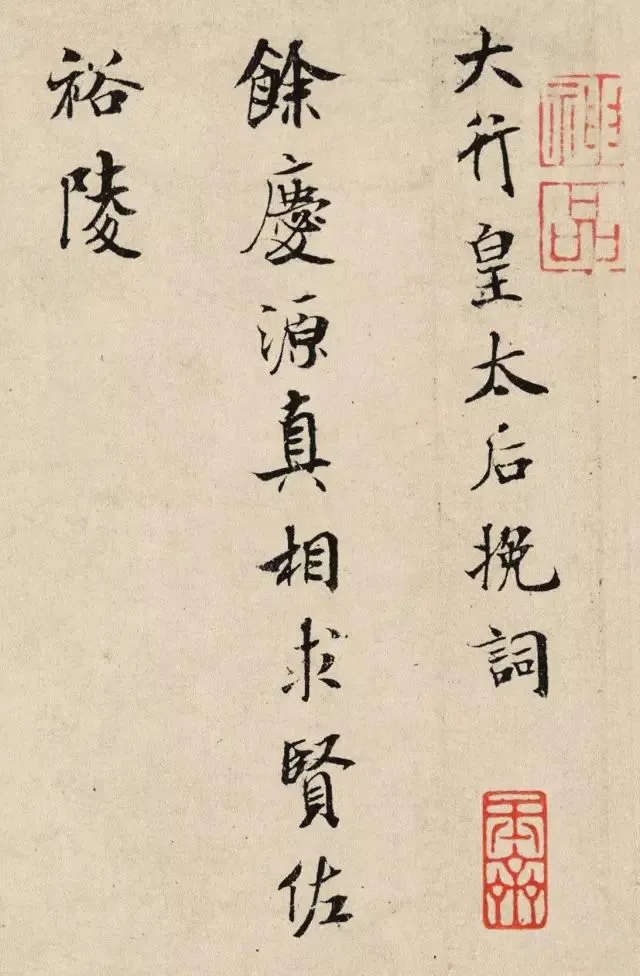 神品
大行皇太后挽詞
餘慶源真相求賢佐
裕陵